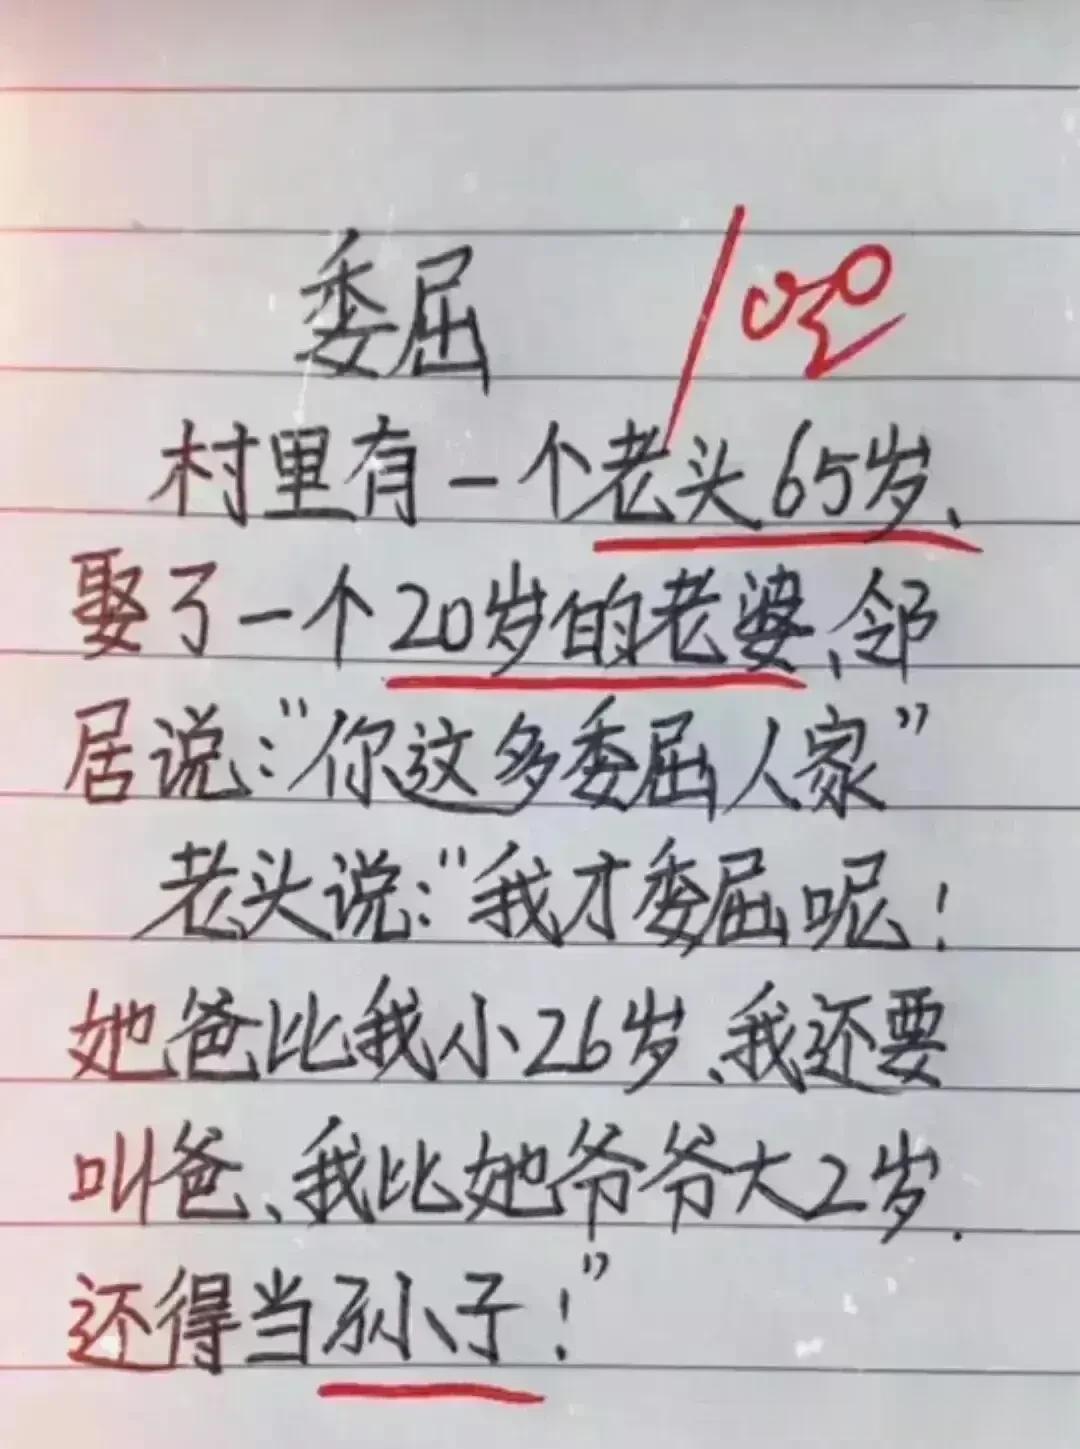 委屈
村里有一个老头65岁、
娶了一个20岁的老婆、邻
居说:“你这多委屈人家”
老头说:“我才委屈呢!
她爸比我小26岁、我还要
叫爸、我比她爷爷大2岁.
还得当孙小子!”